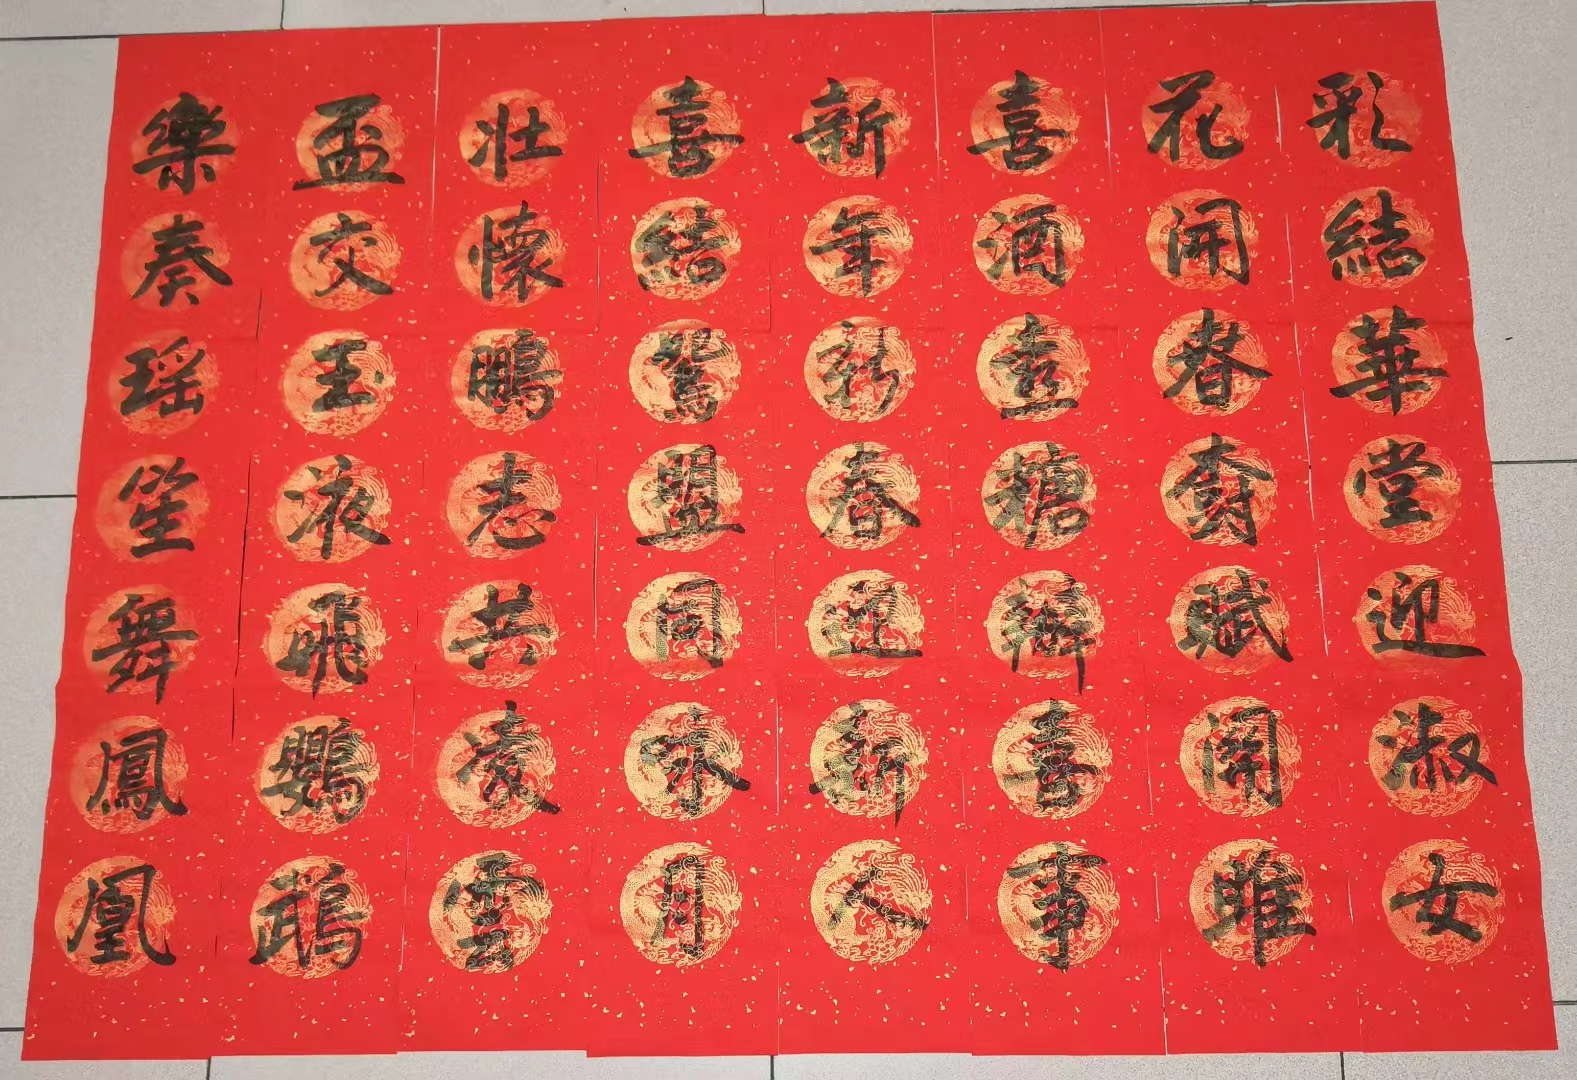 彩結華堂迎淑女
花開春賦關雎
喜酒喜糖辦喜事
新年新春迎新人
喜結鴛盟同咏月
壯懷鵬志共凌雲
盃交玉液飛鸚鵡
樂奏瑶笙舞鳳凰